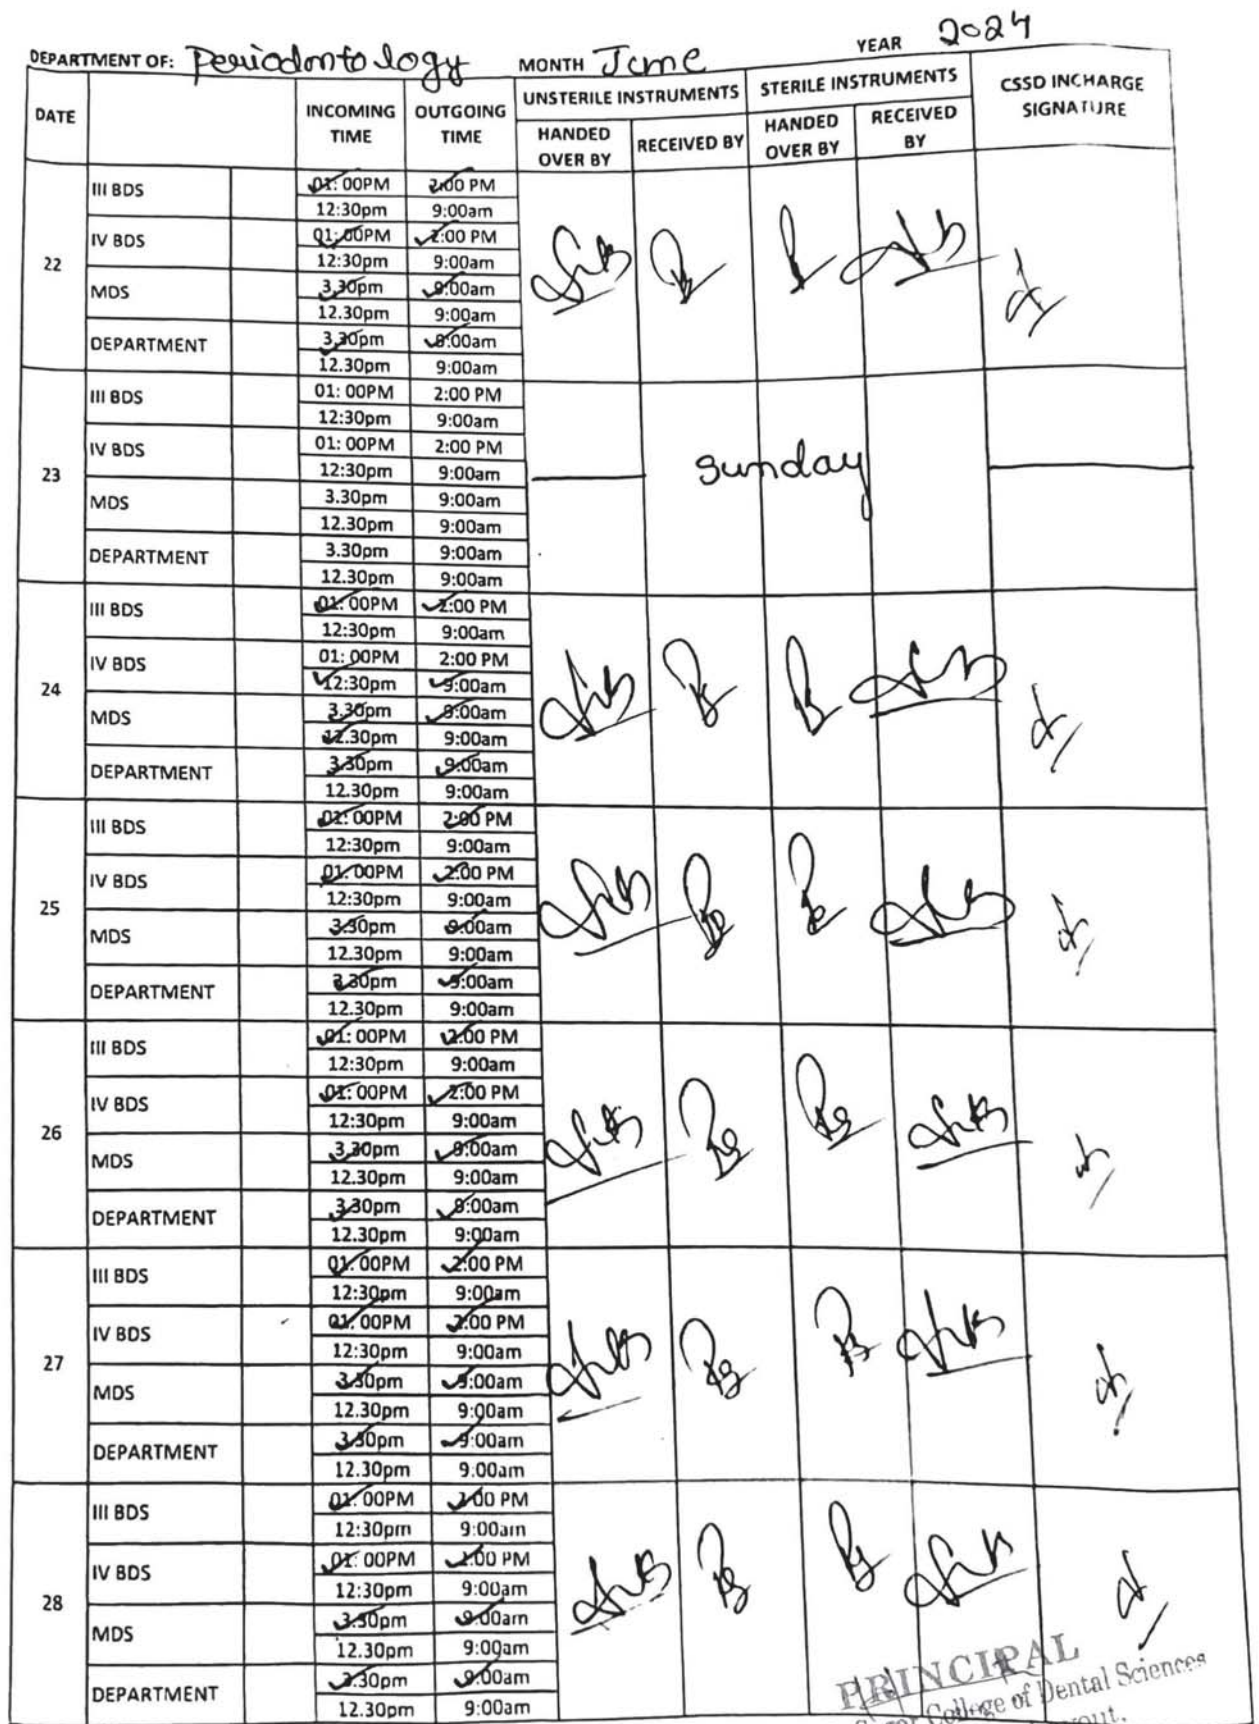 DEPARTMENT OF: Periodontology MONTH June YEAR 2024
DATE INCOMING TIME OUTGOING TIME UNSTERILE INSTRUMENTS STERILE INSTRUMENTS CSSD INCHARGE SIGNATURE
HANDED OVER BY RECEIVED BY HANDED OVER BY RECEIVED BY
22
III BDS 01: 00PM 2:00 PM
12:30pm 9:00am
IV BDS 01: 00PM 2:00 PM
12:30pm 9:00am
MDS 3.30pm 9:00am
12.30pm 9:00am
DEPARTMENT 3.30pm 9:00am
12.30pm 9:00am
23
III BDS 01: 00PM 2:00 PM
12:30pm 9:00am
IV BDS 01: 00PM 2:00 PM
12:30pm 9:00am
sunday
MDS 3.30pm 9:00am
12.30pm 9:00am
DEPARTMENT 3.30pm 9:00am
12.30pm 9:00am
24
III BDS 01: 00PM 2:00 PM
12:30pm 9:00am
IV BDS 01: 00PM 2:00 PM
12:30pm 9:00am
MDS 3.30pm 9:00am
12.30pm 9:00am
DEPARTMENT 3.30pm 9:00am
12.30pm 9:00am
25
III BDS 01: 00PM 2:00 PM
12:30pm 9:00am
IV BDS 01: 00PM 2:00 PM
12:30pm 9:00am
MDS 3.30pm 9:00am
12.30pm 9:00am
DEPARTMENT 3.30pm 9:00am
12.30pm 9:00am
26
III BDS 01: 00PM 2:00 PM
12:30pm 9:00am
IV BDS 01: 00PM 2:00 PM
12:30pm 9:00am
MDS 3.30pm 9:00am
12.30pm 9:00am
DEPARTMENT 3.30pm 9:00am
12.30pm 9:00am
27
III BDS 01: 00PM 2:00 PM
12:30pm 9:00am
IV BDS 01: 00PM 2:00 PM
12:30pm 9:00am
MDS 3.30pm 9:00am
12.30pm 9:00am
DEPARTMENT 3.30pm 9:00am
12.30pm 9:00am
28
III BDS 01: 00PM 2:00 PM
12:30pm 9:00am
IV BDS 01: 00PM 2:00 PM
12:30pm 9:00am
MDS 3.30pm 9:00am
12.30pm 9:00am
DEPARTMENT 3.30pm 9:00am
12.30pm 9:00am
PRINCIPAL
College of Dental Sciences